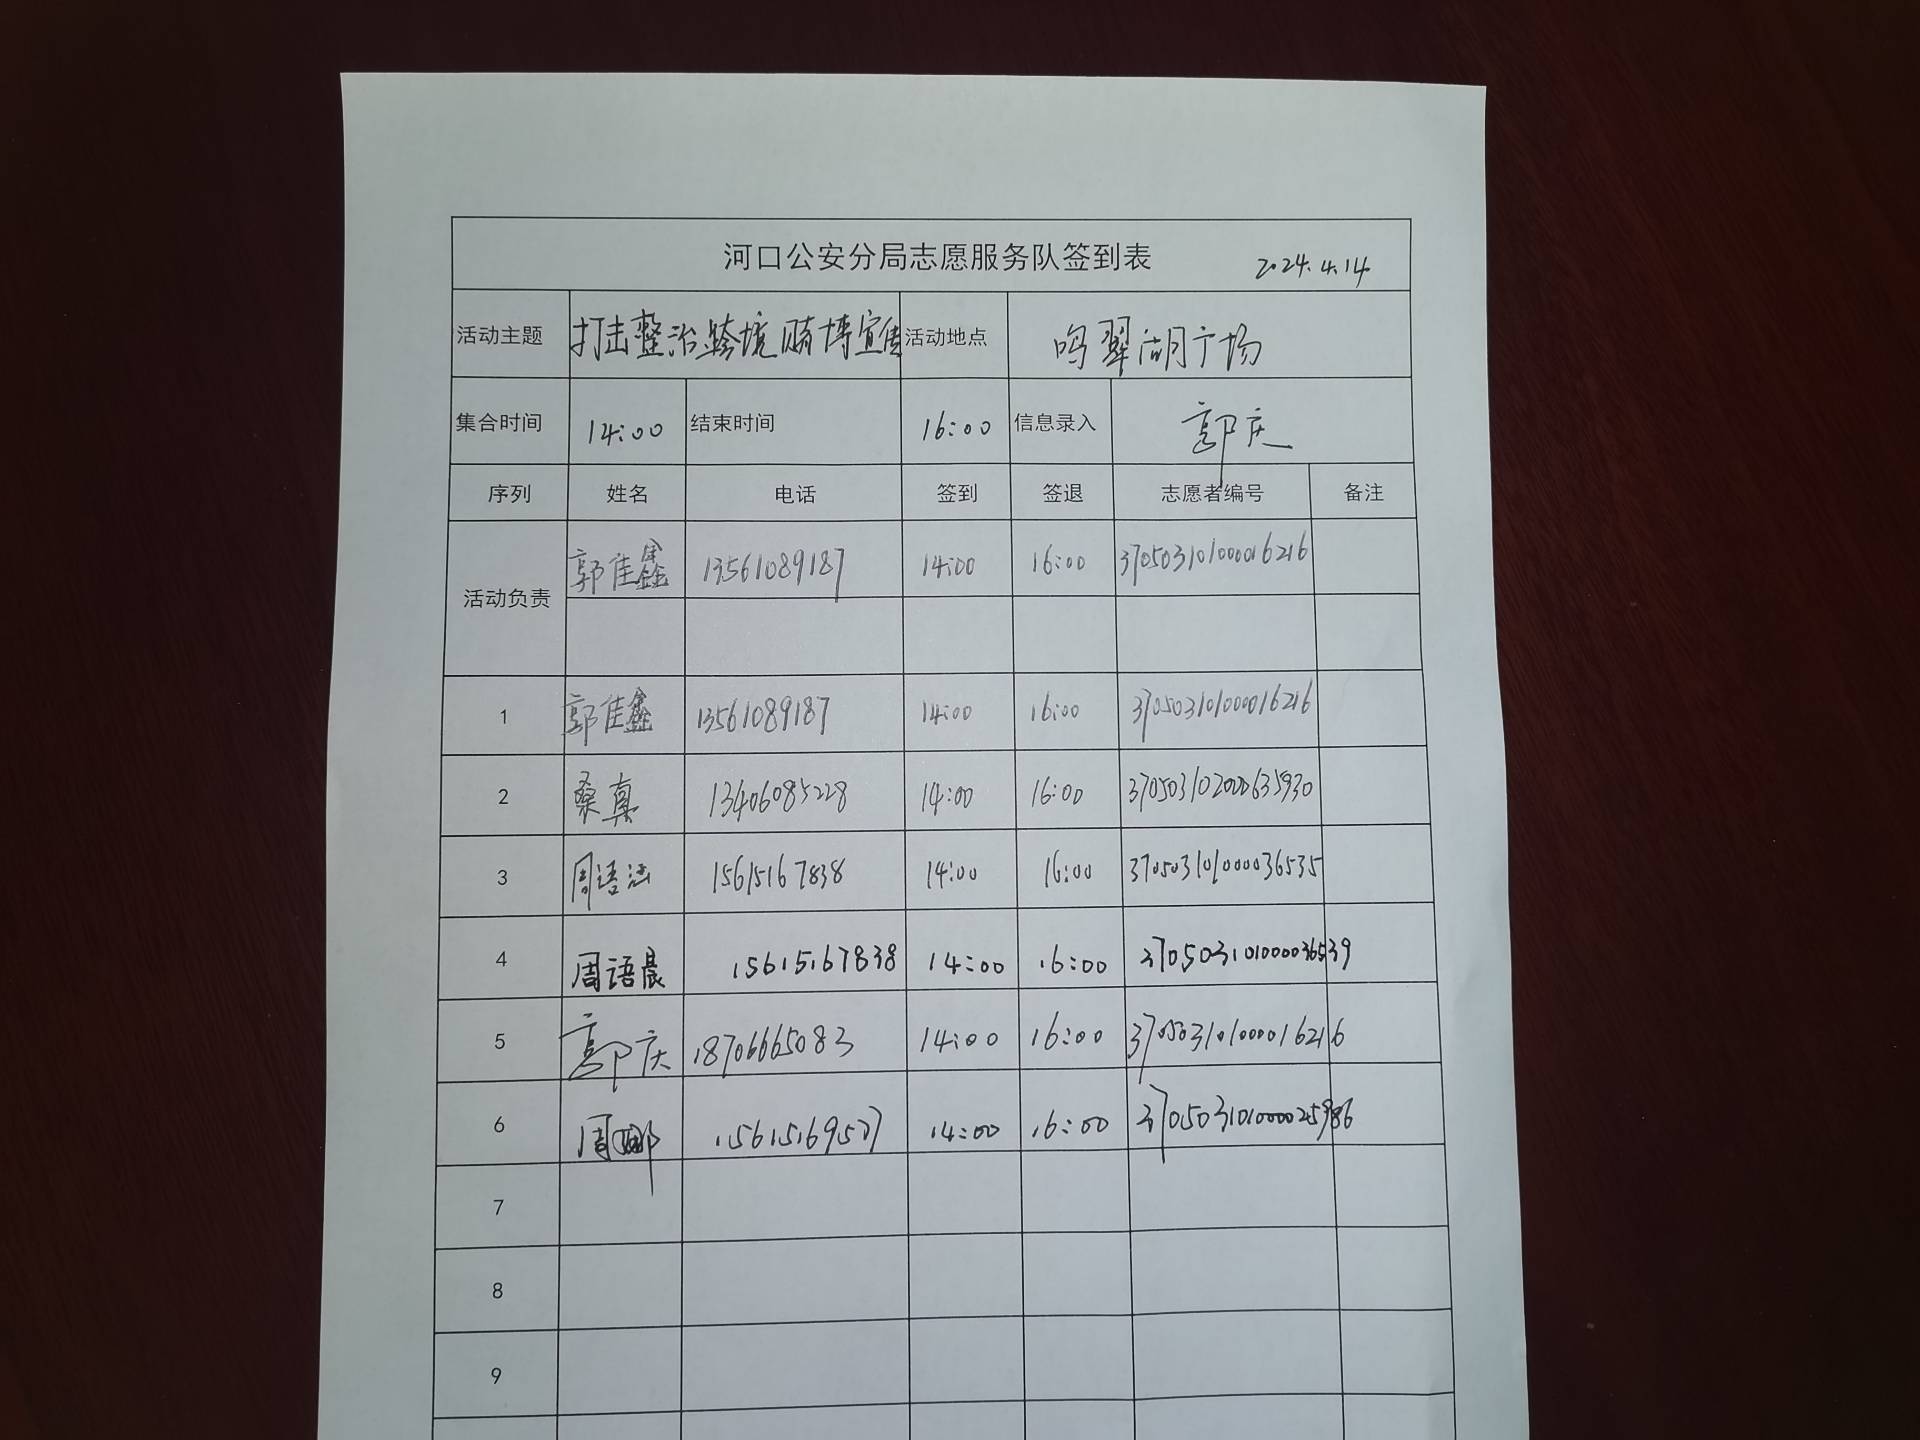 河口公安分局志愿服务队签到表 2024.4.14
活动主题 打击整治跨境赌博宣传 活动地点 鸣翠湖广场
集合时间 14:00 结束时间 16:00 信息录入 郭庆
序列 姓名 电话 签到 签退 志愿者编号 备注
活动负责 郭佳鑫 13561089187 14:00 16:00 370503101000016216
1 郭佳鑫 13561089187 14:00 16:00 370503101000016216
2 桑真 13406085228 14:00 16:00 370503102000635930
3 周语涵 15615167838 14:00 16:00 370503101000036535
4 周语晨 15615167838 14:00 16:00 370503101000036539
5 郭庆 18706665083 14:00 16:00 370503101000016216
6 周娜 14:00 16:00 370503101000025986
7
8
9